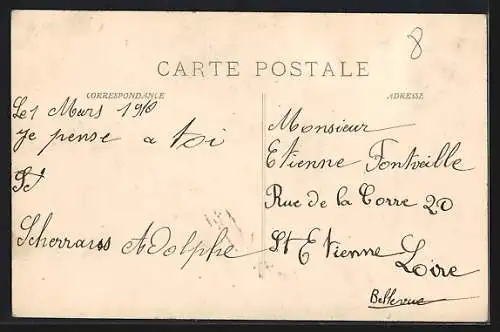 8
CARTE POSTALE
CORRESPONDANCE
ADRESSE
Le 1 Mars 1910
je pense a toi
St
Scherrauss Adolphe
Monsieur
Etienne Fontveille
Rue de la Corre 20
St Etienne
Loire
Bellevue